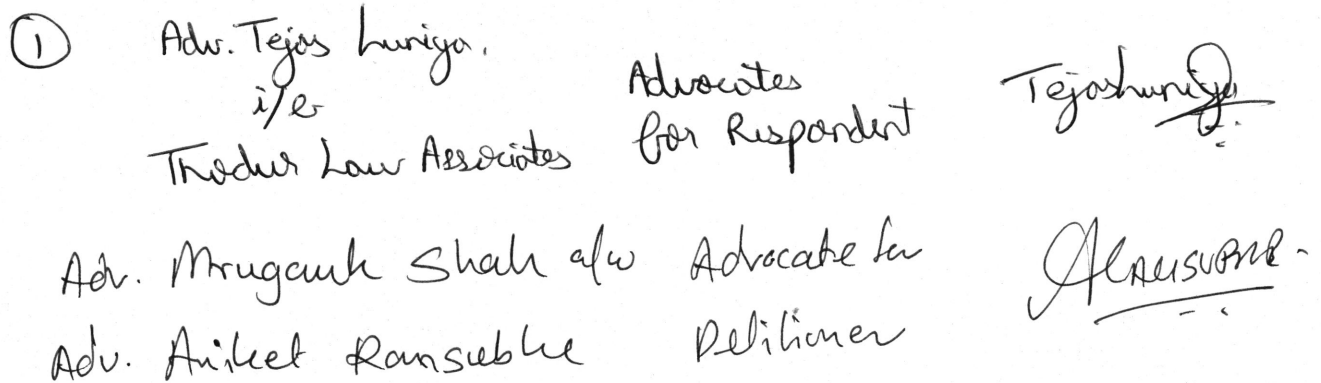 ① Adv. Tejas Luniya.
i/b
Thodur Law Associates
Advocates
for Respondent
Tejasluniya
Adv. Mrugank Shah a/w
Adv. Aniket Ransubhe
Advocate for
Petitioner